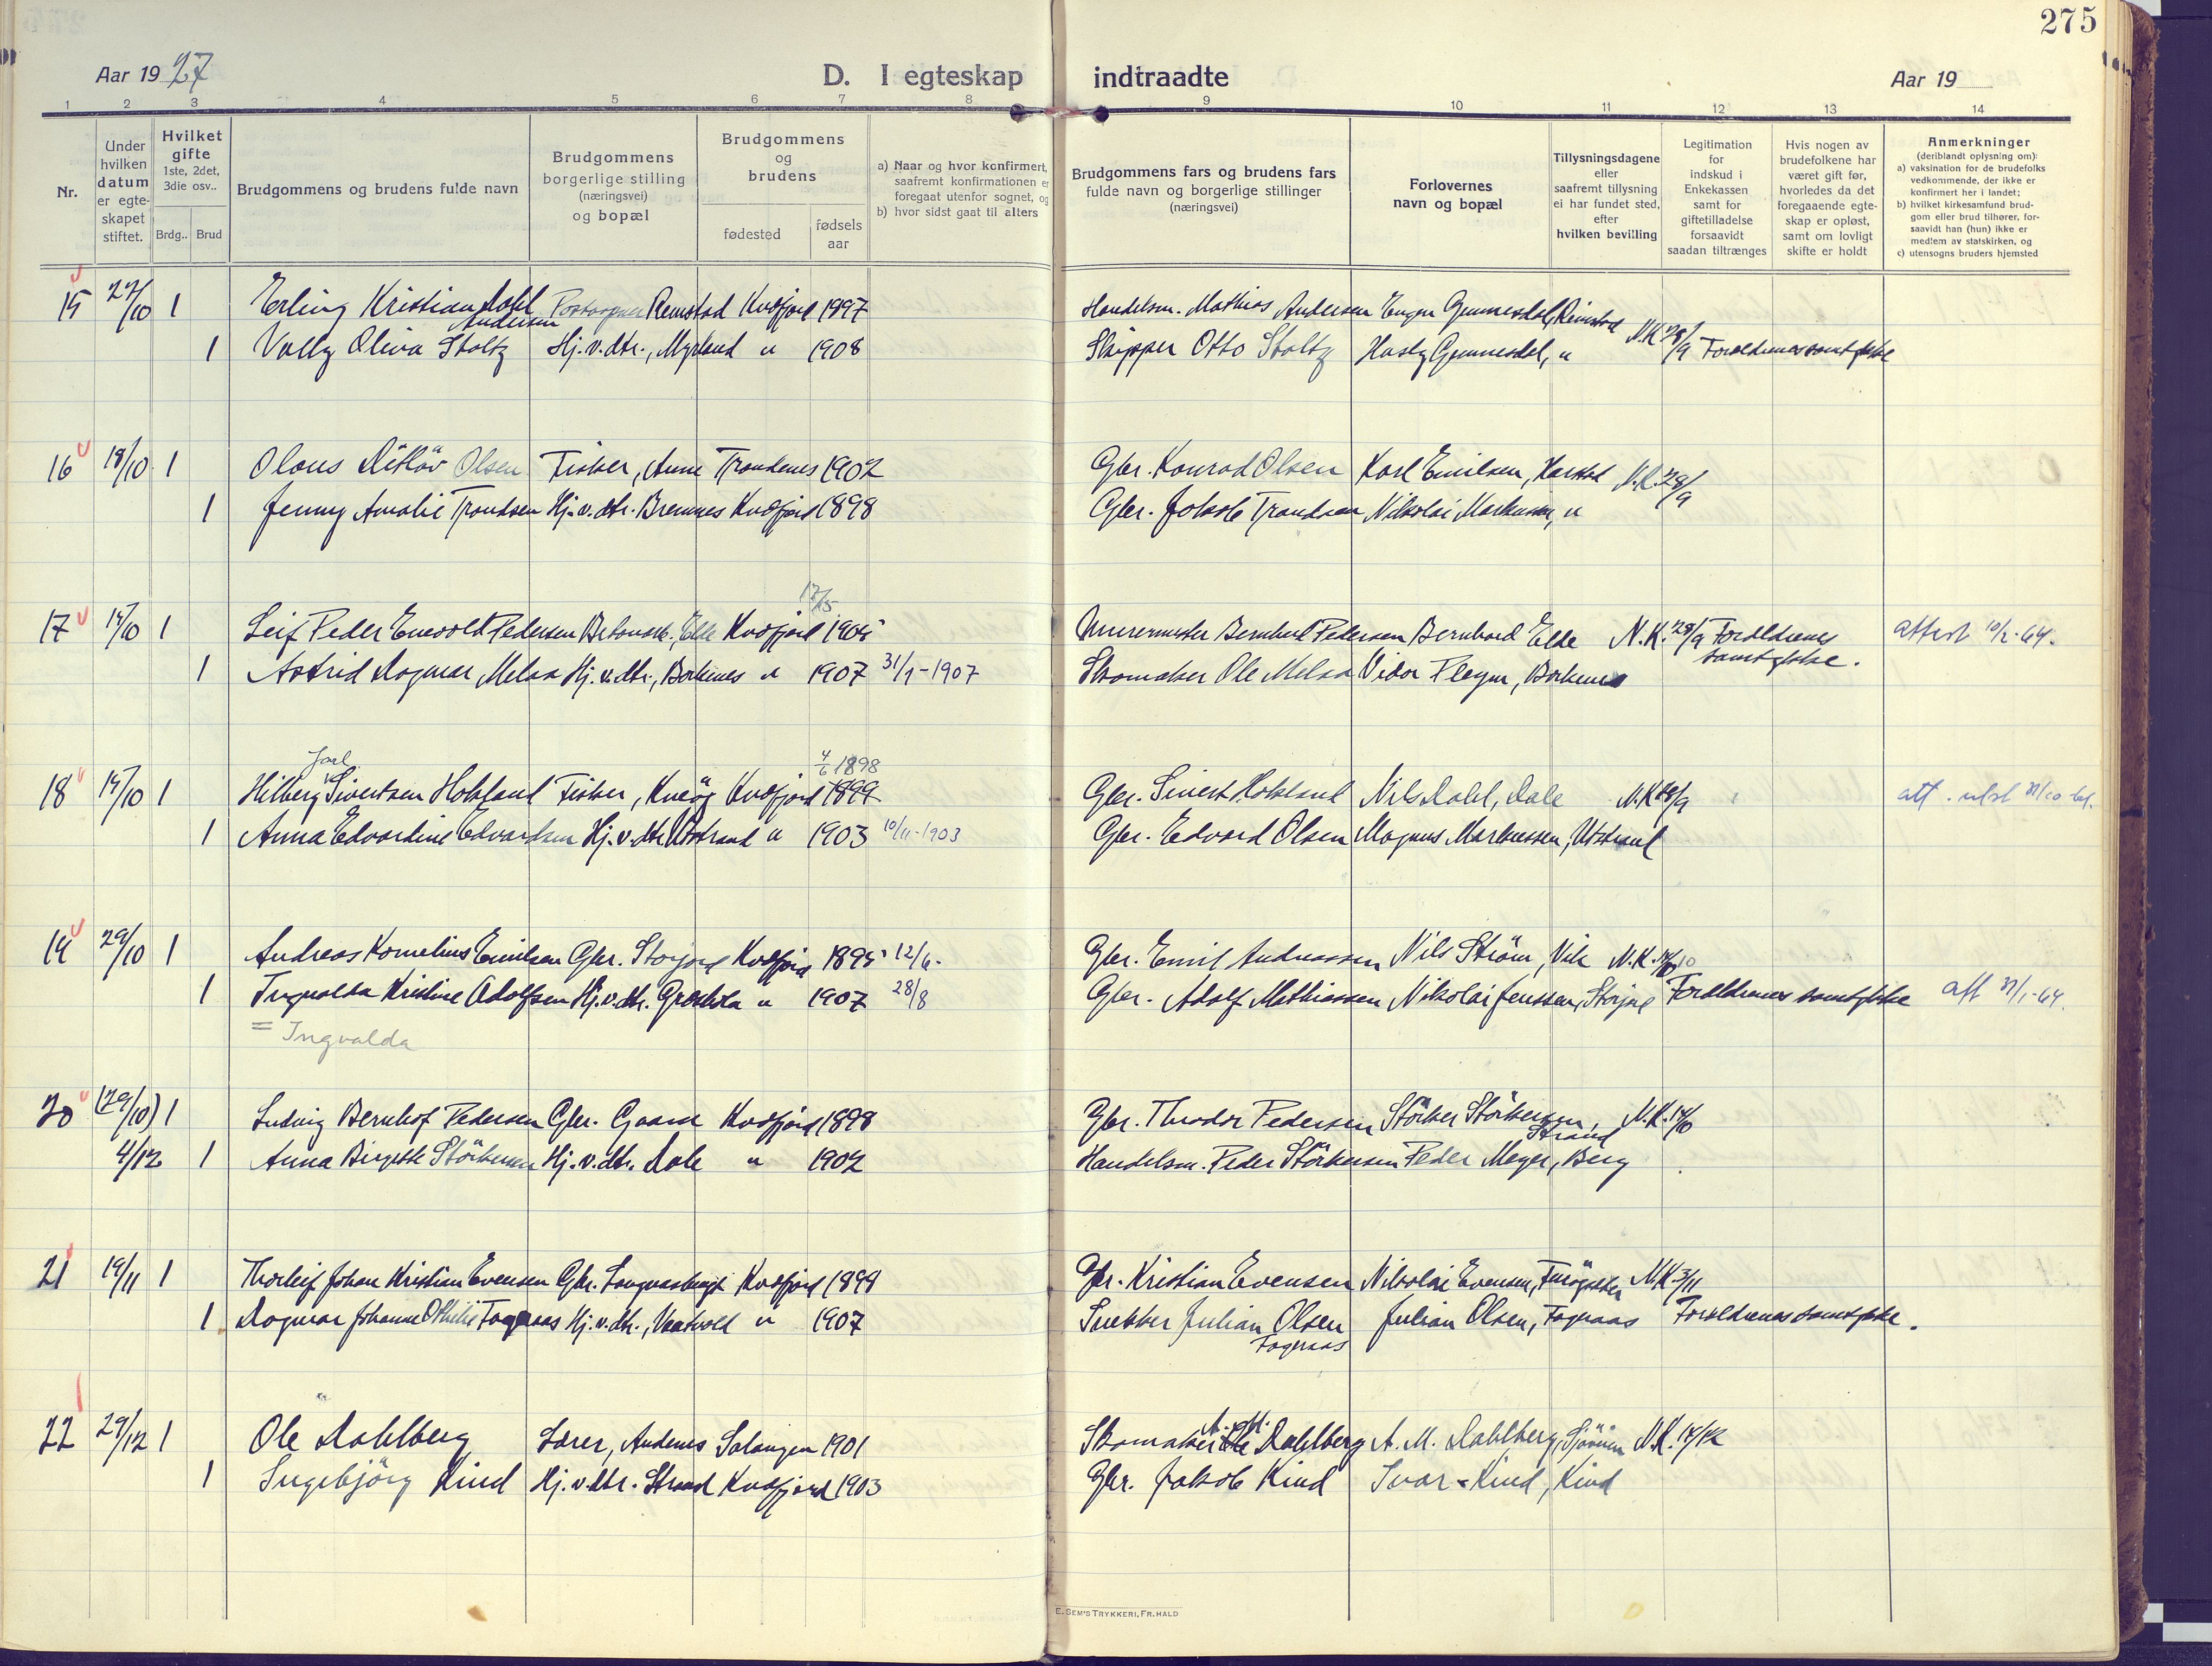 275
Aar 1927 D. I egteskap indtraadte Aar 19
1 2 3 4 5 6 7 8 9 10 11 12 13 14
Nr.
Under hvilken datum er egteskapet stiftet.
Hvilket gifte 1ste, 2det, 3die osv..
Brdg.. Brud
Brudgommens og brudens fulde navn
Brudgommens borgerlige stilling (næringsvei) og bopæl
Brudgommens og brudens
fødested fødsels aar
a) Naar og hvor konfirmert, saafremt konfirmationen er foregaat utenfor sognet, og
b) hvor sidst gaat til alters
Brudgommens fars og brudens fars fulde navn og borgerlige stillinger (næringsvei)
Forlovernes navn og bopæl
Tillysningsdagene eller saafremt tillysning ei har fundet sted, efter hvilken bevilling
Legitimation for indskud i Enkekassen samt for giftetilladelse forsaavidt saadan tiltrænges
Hvis nogen av brudefolkene har været gift før, hvorledes da det foregaaende egteskap er opløst, samt om lovligt skifte er holdt
Anmerkninger (deriblandt oplysning om):
a) vaksination for de brudefolks vedkommende, der ikke er konfirmert her i landet;
b) hvilket kirkesamfund brudgom eller brud tilhører, forsaavidt han (hun) ikke er medlem av statskirken, og
c) utensogns bruders hjemsted
15 1 Erling Kristian Dahl Remstad Kvæfjord 1897 Handelsm. Mathias Andersen
Andersen
1 Oliva Stoltz Hj.v.dtr., Myrland " 1908 Skipper Otto Stoltz N.K. 28/9 Forældrenes samtykke
16 18/10 1 Olaus Olsen Fisker, Trondenes 1902 Gbr. Konrad Olsen Karl Emilsen, Harstad N.K. 28/9
1 Jenny Amalie Trondsen Hj.v.dtr. Bremnes Kvæfjord 1898 Gbr. Jakob Trondsen Nikolai Markussen, "
17 14/10 1 Leif Peder Enevold Pedersen Elde Kvæfjord 1905 Murermester Bernhard Pedersen Bernhard Elde N.K. 28/9 Forældrenes samtykke. attest 10/2-64.
1 Astrid Dagmar Melaa Hj.v.dtr., Borkenes " 1907 31/1-1907 Skomaker Ole Melaa Vidar Borkenes
Jarl 4/6 1898
18 14/10 1 Hilberg Sivertsen Hokland Fisker, Kvæfjord 1899 Gbr. Sivert Hokland Nils Dahl, Dale N.K. 28/9
1 Anna Edvardine Edvardsen Hj.v.dtr. Utstrand " 1903 10/11-1903 Gbr. Edvard Olsen Magnus Markussen, Utstrand
19 29/10 1 Andreas Kornelius Emilsen Gbr. Storjord Kvæfjord 1895 12/6. Gbr. Emil Andreassen Nils Strøm, Vik N.K.
1 Kristine Adolfsen Hj.v.dtr. " 1907 28/8 Gbr. Adolf Mathiassen Nikolai Jenssen, Storjord Forældrenes samtykke
= Ingvalda
20 (29/10) 1 Ludvig Bernhof Pedersen Gbr. Gaara Kvæfjord 1898 Gbr. Theodor Pedersen Störker Störkersen, Strand N.K. 14/10
4/12 1 Anna Birgitte Störkersen Hj.v.dtr. Dale " 1902 Handelsm. Peder Störkersen Peder Meyer, Berg
21 19/11 1 Thorleif Johan Kristian Evensen Gbr. Kvæfjord 1899 Gbr. Kristian Evensen Nikolai Evensen, N.K. 3/11
1 Dagmar Johanne Othilie Fagraas Hj.v.dtr., " 1907 Snekker Julian Olsen Julian Olsen, Fagraas Forældrenes samtykke.
Fageraas
22 29/12 1 Ole Dahlberg Lærer, Andenes Salangen 1901 Skomaker A. M. Dahlberg A. M. Dahlberg, N.K. 14/12
1 Ingebjörg Kind Hj.v.dtr. Strand Kvæfjord 1903 Gbr. Jakob Kind Ivar Kind, Kind
E. SEM'S TRYKKERI, FR.HALD